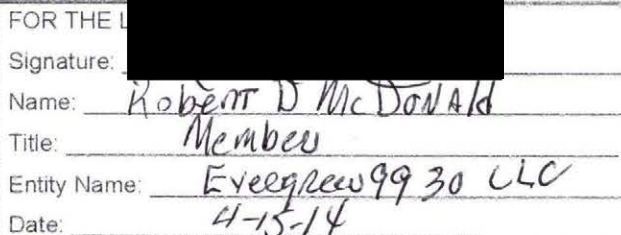 FOR THE L
Signature:
Name: Robert D McDonald
Title: Member
Entity Name: Evergreen 9930 LLC
Date: 4-15-14